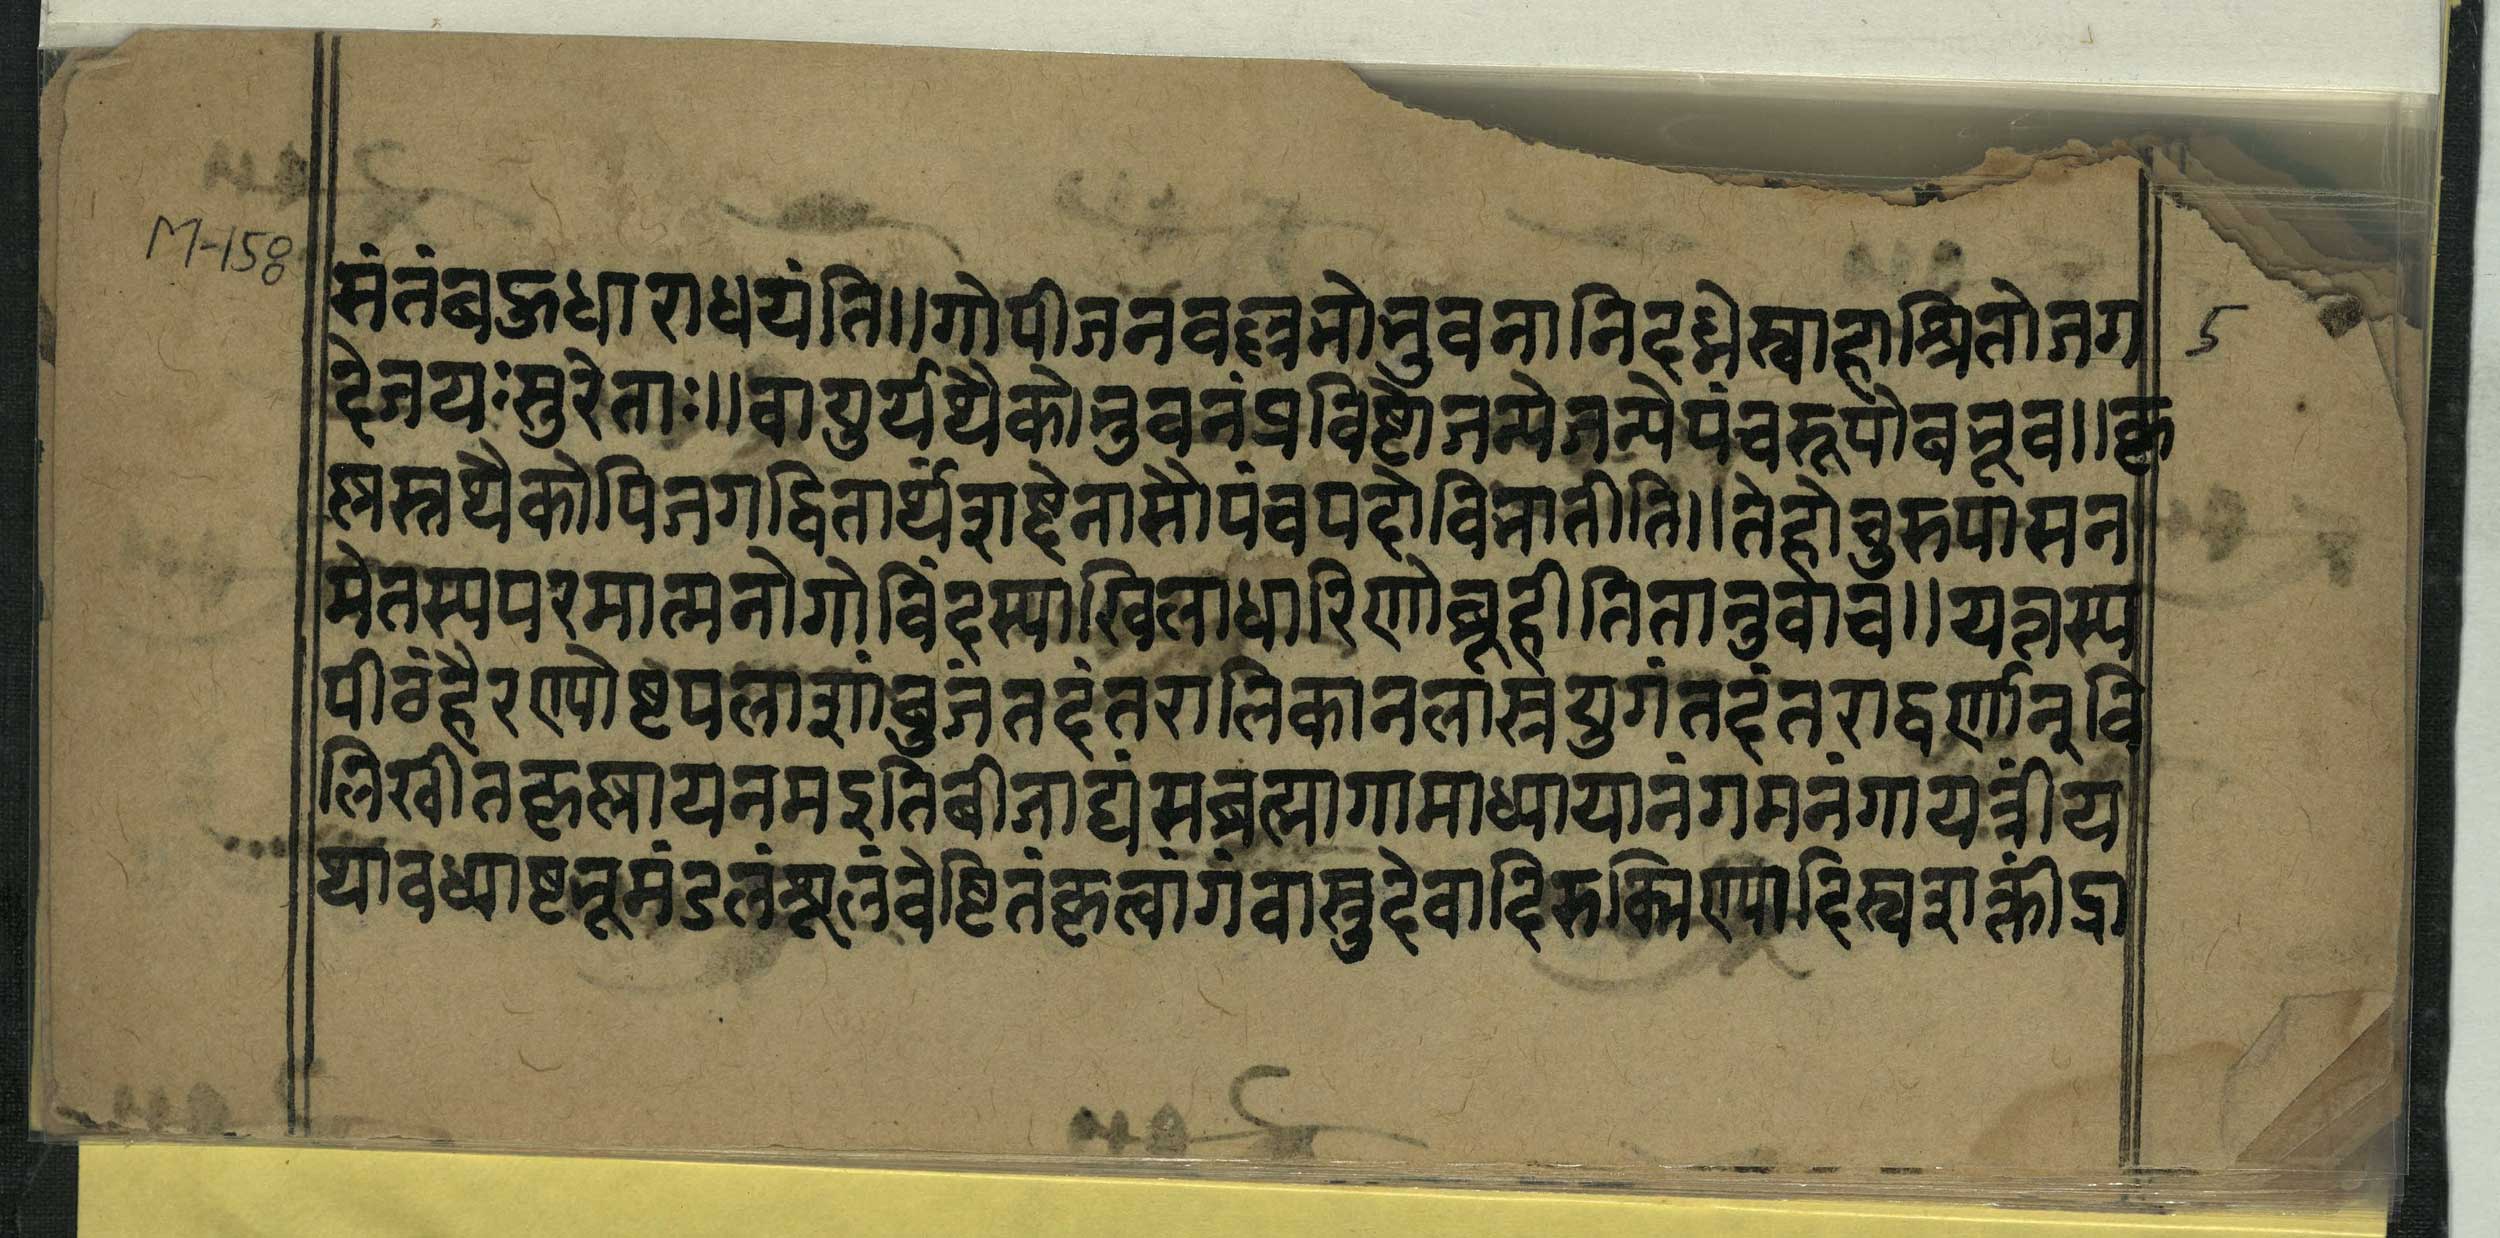 M-158
संतंबहुधाराधयंति॥गोपीजनवल्लभोभुवनानिदध्रेस्वाहाश्रितोजग 5
देजयःसुरेताः॥वायुर्यथैकोभुवनंप्रविष्टोजन्येजन्येपंचरूपोबभूव॥कृ
ष्णस्तथैकोपिजगद्धितार्थंशब्देनासौपंचपदोविभातीति॥तेहोचुरुपासन
मेतस्यपरमात्मनोगोविंदस्याखिलाधारिणोब्रूहीतितानुवाच॥यत्तस्य
पीठंहैरण्योष्टपलाशांबुजंतदंतरालिकानलास्त्रयुगंतदंतराद्वर्णानूवि
लिखीतकृष्णायनमइतिबीजाद्यंसब्रह्माणमाध्यायानंगमनंगायत्रींय
थावध्याष्टभूमंडलंशूलंवेष्टितंकृत्वांगंवासुदेवादिरुक्मिण्यादिस्वशक्तींद्रा